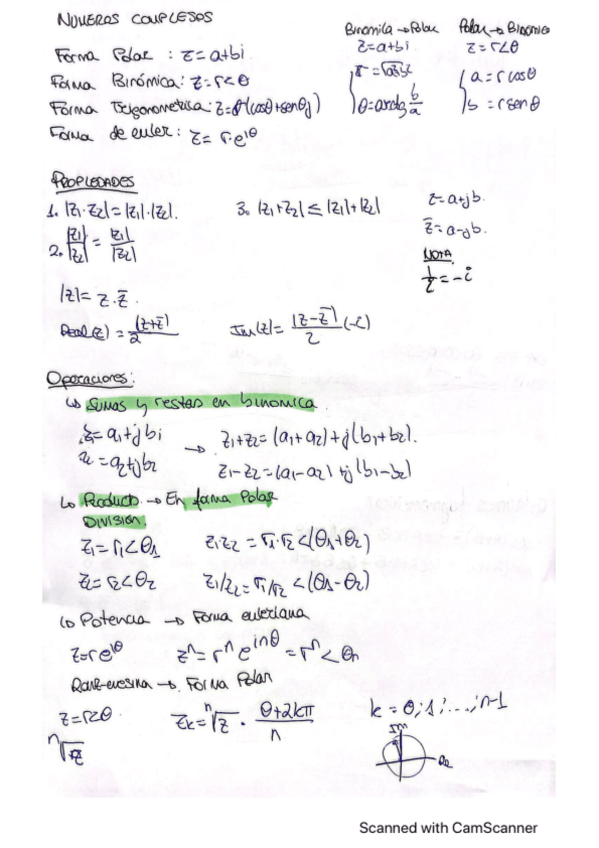 NÚMEROS COMPLEJOS
Forma Polar : z=a+bi
Forma Binómica: z=r<θ
Forma Trigonometrica: z=r(cosθ+senθj)
Forma de euler: z= r·e^iθ
Binomica → Polar
z=a+bi
θ=arctg b/a
Polar → Binomica
z=r<θ
a=rcosθ
b=rsenθ
PROPIEDADES
1. |z1·z2|=|z1|·|z2|.
2. |z1|/|z2| = |z1|/|z2|
3. |z1+z2| ≤ |z1|+|z2|
z=a+jb.
z̄=a-jb.
NOTA
1/i=-i
|z|= z·z̄.
Real(z)= (z+z̄)/2
Im(z)= (z-z̄)/2 (-i)
Operaciones:
↳ Sumas y restas en binomica.
z1=a1+jb1
z2=a2+jb2
→ z1+z2=(a1+a2)+j(b1+b2).
z1-z2=(a1-a2)+j(b1-b2)
↳ Producto → En forma Polar
DIVISIÓN.
z1=r1<θ1
z1z2 = r1·r2<(θ1+θ2)
z2=r2<θ2
z1/z2=r1/r2<(θ1-θ2)
↳ Potencia → Forma euleriana
z=re^iθ
z^n=r^n e^inθ = r^n<θn
Raíz-enesima → Forma Polar
z=r<θ
zk=ⁿ√z · (θ+2kπ)/n
k=0,1,...,n-1
ⁿ√z
Im
Re
Scanned with CamScanner